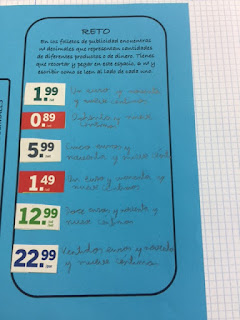 RETO
En los folletos de publicidad encuentras
nº decimales que representan cantidades
de diferentes productos o de dinero. Tienes
que recortar y pegar en este espacio, 6 nº y
escribir como se leen al lado de cada uno.
1.99 Un euro y noventa
y nueve céntimos
0.89 Ochenta y nueve
céntimos
5.99 Cinco euros y
noventa y nueve
1.49 Un euro y cuarenta y
nueve céntimos
12.99 Doce euros y noventa y
nueve céntimos
22.99 Veintidos euros y noventa
y nueve céntimos